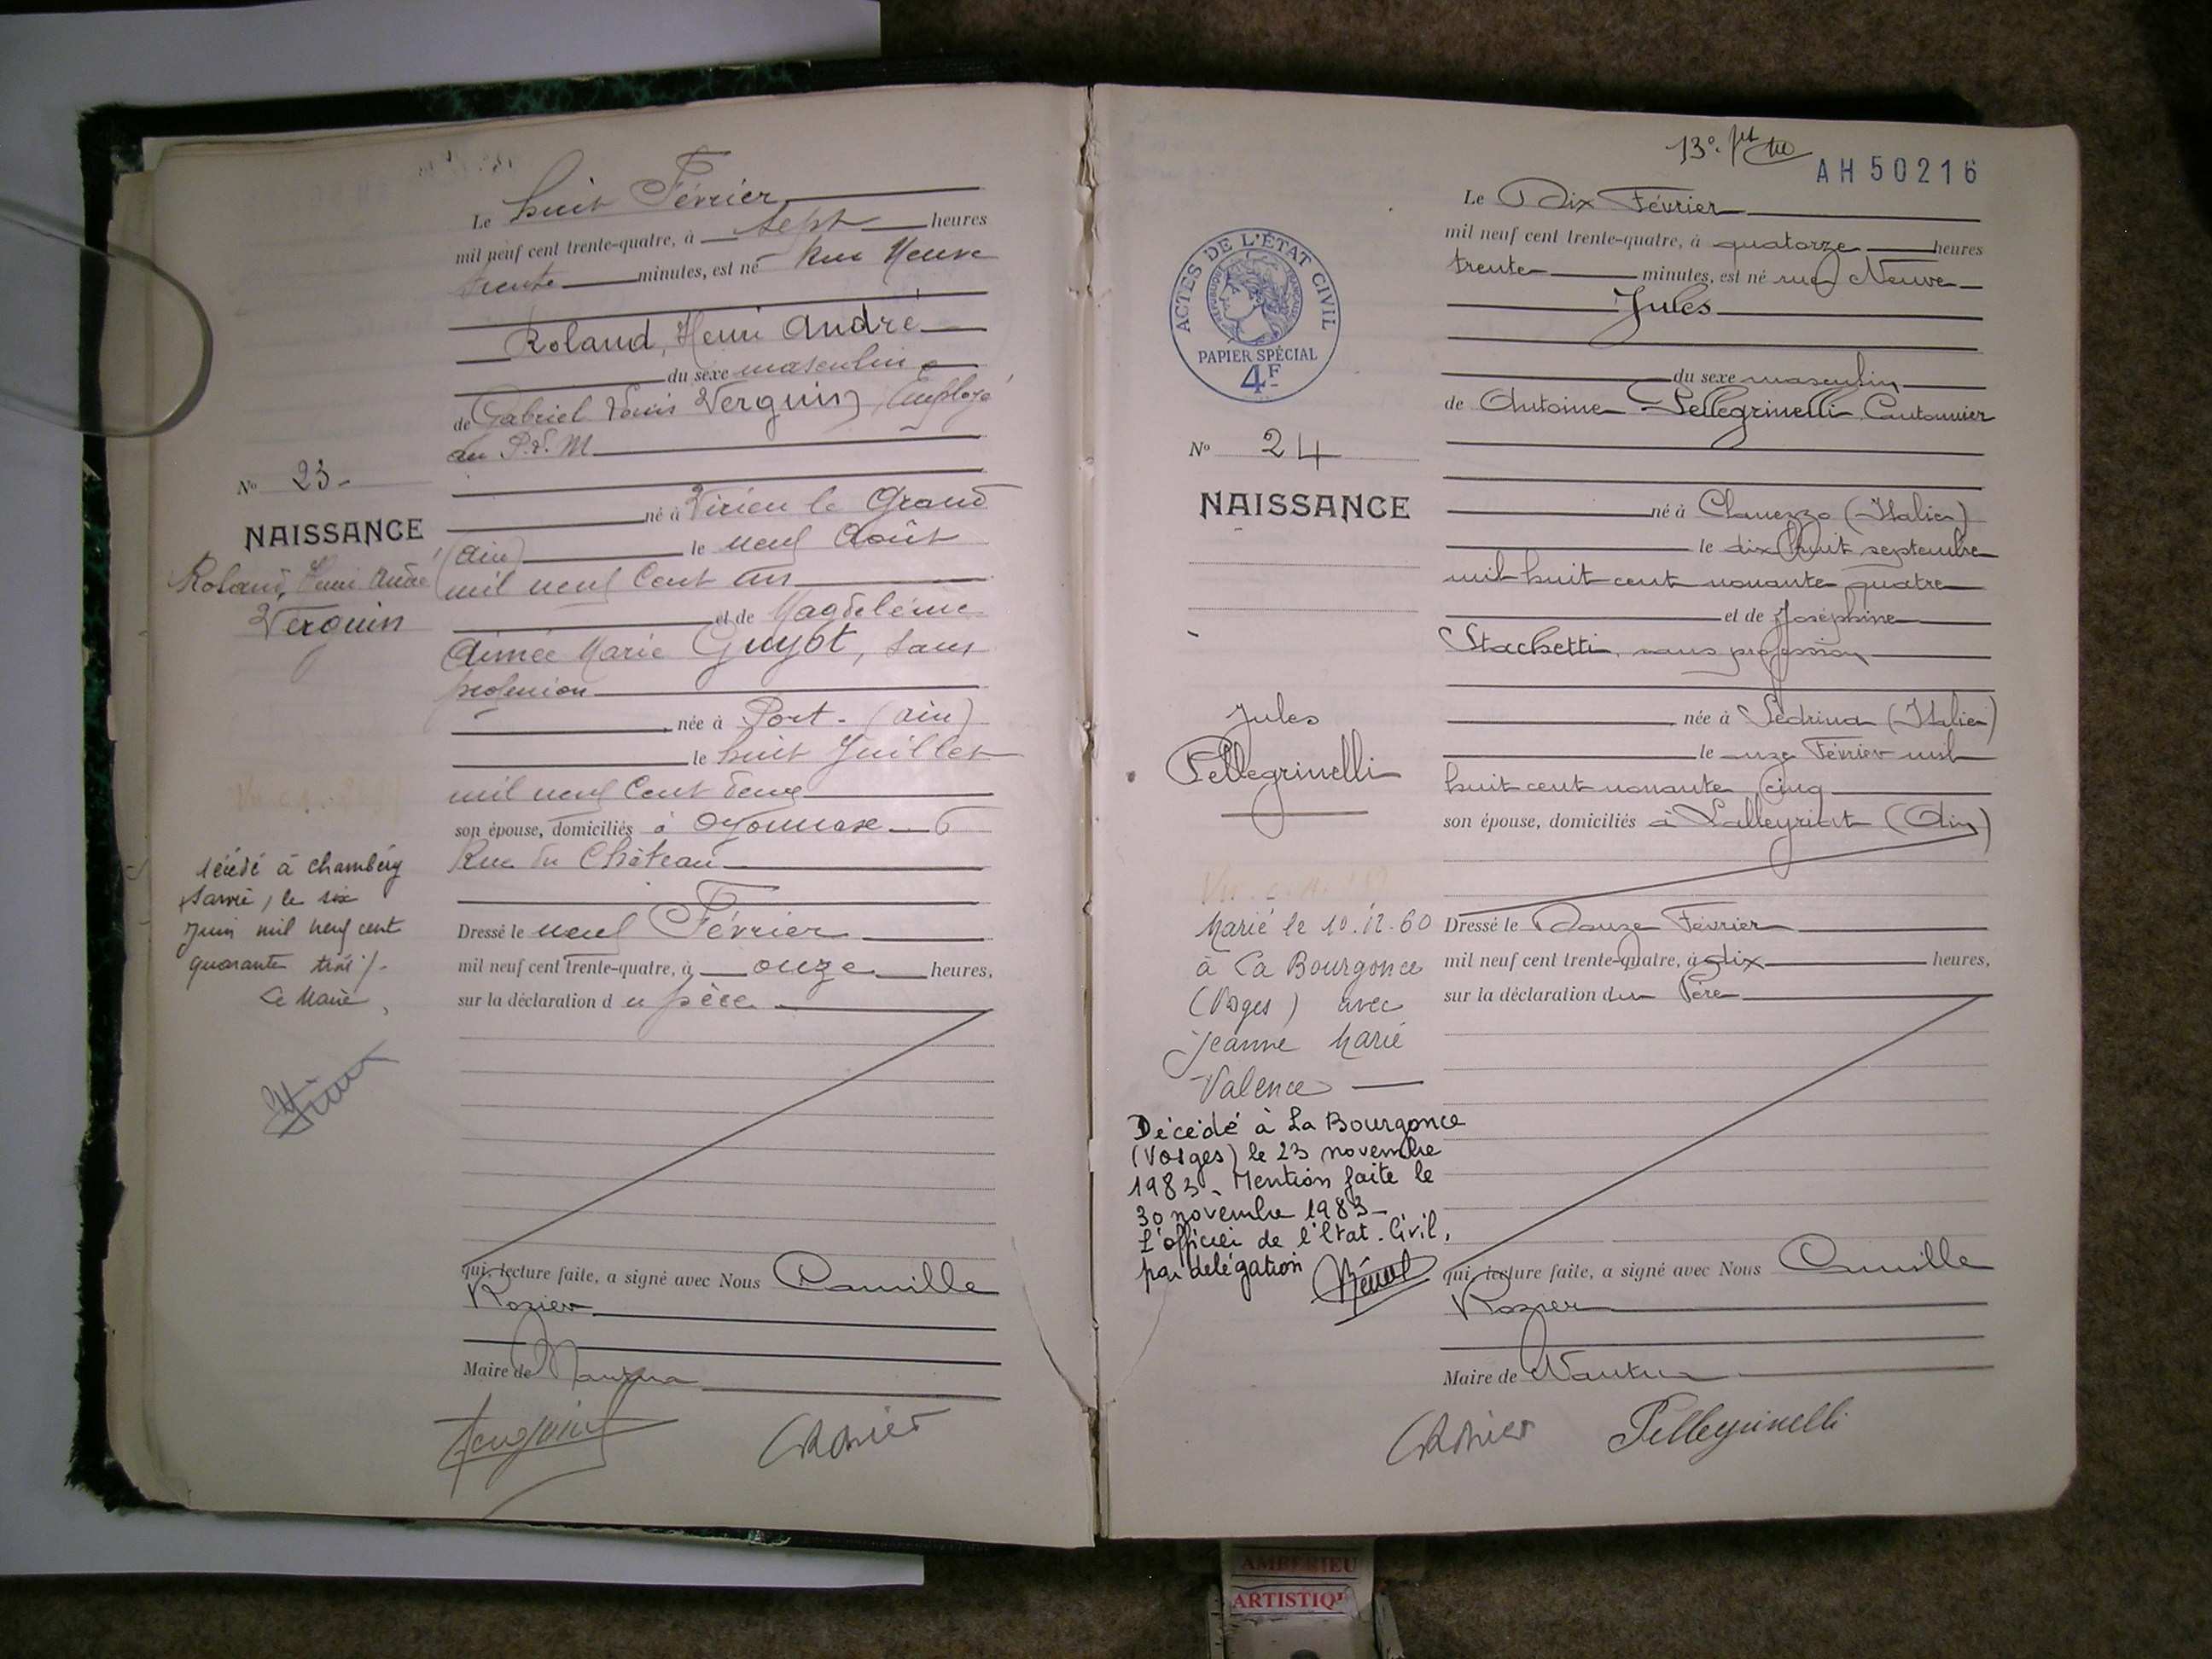 Le huit Février
mil neuf cent trente-quatre, à sept heures
trente minutes, est né Rue Neuve
Roland, Henri André
du sexe masculin
de Gabriel Louis Verguin, Employé
au P.L.M
né à Virieu le Grand
(Ain) le neuf Août
mil neuf cent un
et de Magdeleine
Aimée Marie Guyot, sans
profession
née à Port - (Ain)
le huit Juillet
mil neuf cent deux
son épouse, domiciliés à Oyonnax 6
Rue du Château
Dressé le neuf Février
mil neuf cent trente-quatre, à onze heures,
sur la déclaration du père
qui, lecture faite, a signé avec Nous Camille
Rozier
Maire de Nantua
Verguin
CRozier
No 23-
NAISSANCE
Roland, Henri André
Verguin
décédé à Chambéry
Savoie, le six
Juin mil neuf cent
quarante trois /.
Le Maire,
13e
AH50216
ACTES DE L'ÉTAT CIVIL
RÉPUBLIQUE FRANÇAISE
PAPIER SPÉCIAL
4F
No 24
NAISSANCE
Jules
Pellegrinelli
Marié le 10.12.60
à La Bourgonce
(Vosges) avec
Jeanne Marie
Valence
Décédé à La Bourgonce
(Vosges) le 23 novembre
1983 - Mention faite le
30 novembre 1983 -
L'officier de l'Etat-Civil,
par délégation
Le Dix Février
mil neuf cent trente-quatre, à quatorze heures
trente minutes, est né rue Neuve
Jules
du sexe masculin
de Antoine Pellegrinelli Cantonnier
né à (Italie)
le dix huit septembre
mil huit cent nonante quatre
et de Joséphine
Stachetti, sans profession
née à Sedrina (Italie)
le onze Février mil
huit cent nonante cinq
son épouse, domiciliés à Lalleyriat (Ain)
Dressé le Douze Février
mil neuf cent trente-quatre, à dix heures,
sur la déclaration du Père
qui, lecture faite, a signé avec Nous Camille
Rozier
Maire de Nantua
CRozier Pellegrinelli
AMBERIEU
ARTISTIQU